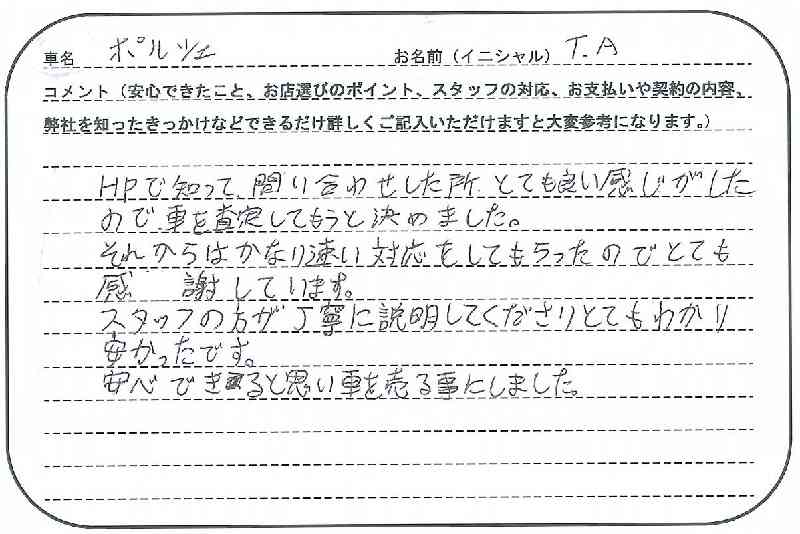 車名 ポルシェ お名前（イニシャル） T.A
コメント（安心できたこと、お店選びのポイント、スタッフの対応、お支払いや契約の内容、
弊社を知ったきっかけなどできるだけ詳しくご記入いただけますと大変参考になります。）
HPで知って、問り合わせした所、とても良い感じがした
ので車を査定してもうと決めました。
それからはかなり速い対応をしてもらったのでとても
感 謝しています。
スタッフの方が丁寧に説明してくださりとてもわかり
安かったです。
安心できると思い車を売る事にしました。